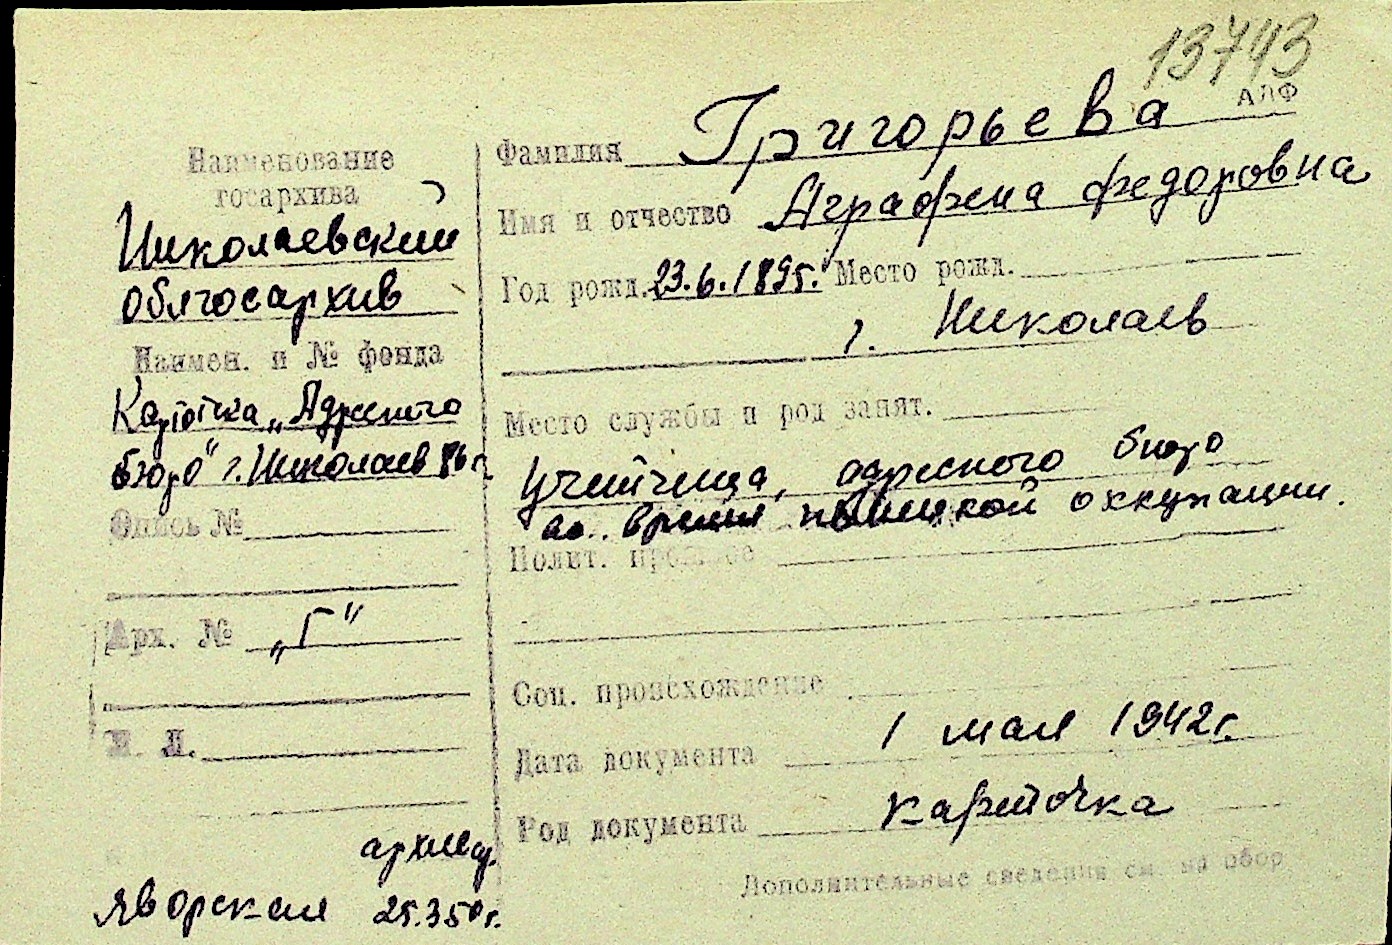 13743
АЛФ
Наименование
госархива
Николаевский
облгосархив
Наимен. и № фонда
Карточка „Адресного
бюро" г. Николаев
Опись №
Арх. № „Г"
К. Л.
архив.
Яворская 25.3.50г.
Фамилия Григорьева
Имя и отчество Аграфена Федоровна
Год рожд. 23.6.1895г. Место рожд.
г. Николаев
Место службы и род занят.
учетчица, адресного бюро
во время немецкой оккупации.
Полит. прошлое
Соц. происхождение
Дата документа 1 мая 1942г.
Род документа карточка
Дополнительные сведения см. на обор